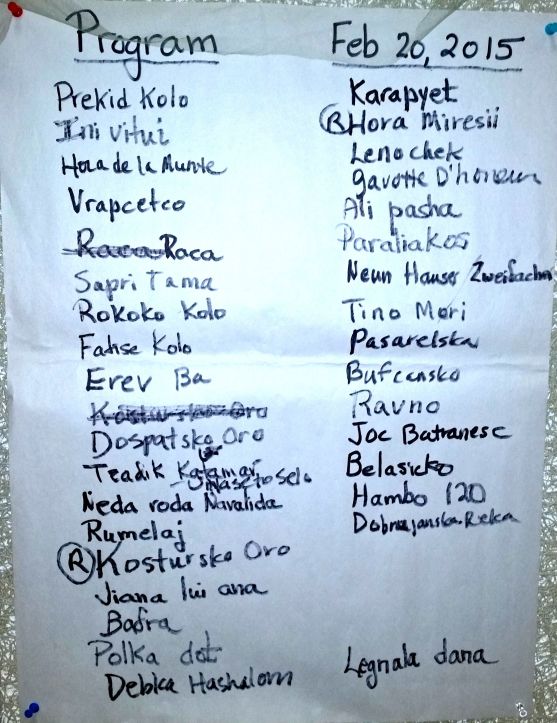 Program
Prekid Kolo
Ini Vitui
Hora de la Munte
Vrapcetco
Raca
Sapri Tama
Rokoko Kolo
Fatise Kolo
Erev Ba
Kostursko Oro
Dospatsko Oro
Tradik Kalamar
U Naszto Selo
Neda roda Navalida
Rumelaj
R Kostursko Oro
Jiana lui ana
Bafra
Polka dot
Debka Hashalom
Feb 20, 2015
Karapyet
R Hora Miresii
Lenochek
gavotte D'honeur
Ali pasha
Paraliakos
Neun Hauser Zweifacher
Tino Mori
Pasarelska
Bufcansko
Ravno
Joc Batranesc
Belasicko
Hambo 120
Dobrujanska Reka
Legnala dana